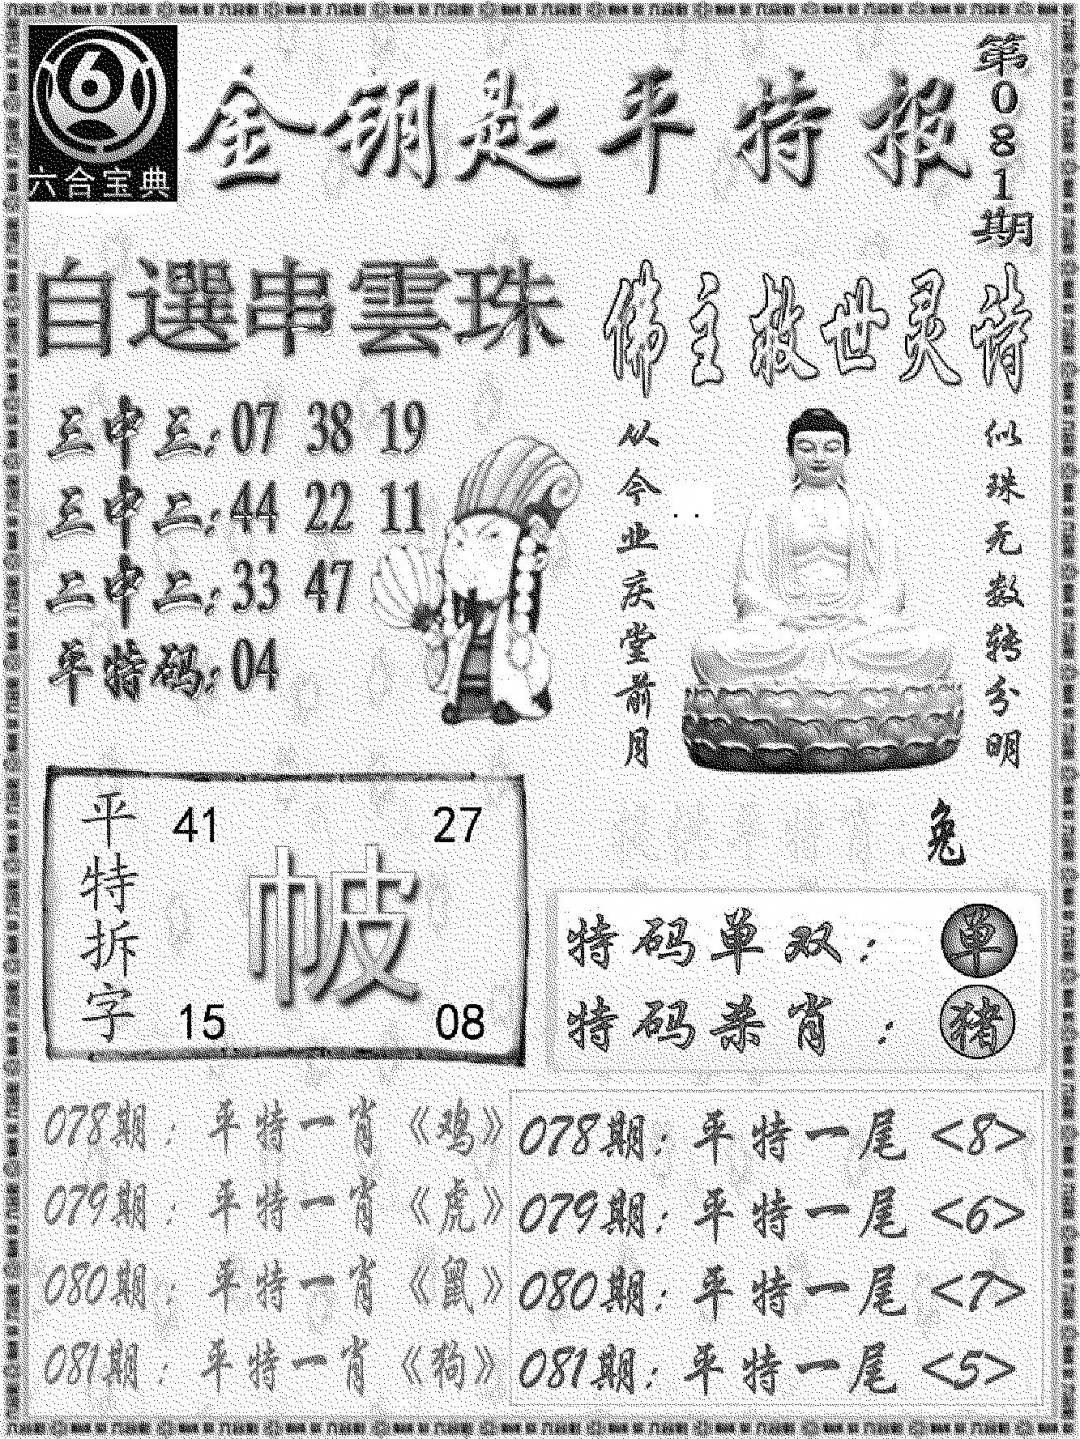 六合宝典
金钥匙平特报
第081期
自選串雲珠
三中三:07 38 19
三中二:44 22 11
二中二:33 47
平特码:04
佛主救世灵诗
从今业庆堂前月
似珠无数转分明
兔
平特拆字
41 27
帔
15 08
特码单双: 单
特码杀肖: 猪
078期:平特一肖《鸡》
079期:平特一肖《虎》
080期:平特一肖《鼠》
081期:平特一肖《狗》
078期:平特一尾<8>
079期:平特一尾<6>
080期:平特一尾<7>
081期:平特一尾<5>